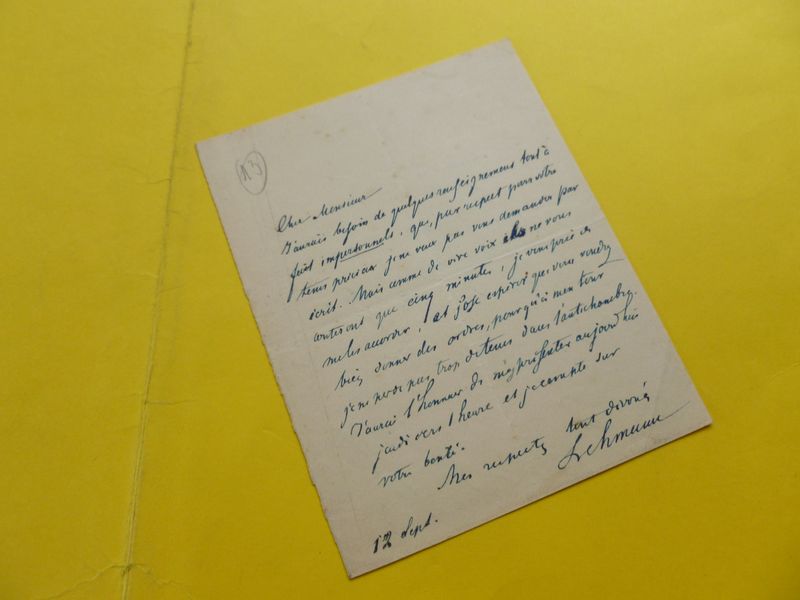 13
Cher Monsieur
J'aurais besoin de quelques renseignements tout à
fait impersonnels, que, par respect pour votre
temps précieux je ne veux pas vous demander par
écrit. Mais comme de vive voix ne vous
couteront que cinq minutes, je vous prie de
me les accorder, et j'ose espérer que vous voudrez
bien donner des ordres, pour qu'à mon tour
je ne sois pas trop detenu dans l'antichambre.
J'aurai l'honneur de m'y présenter aujourd'hui
jeudi vers 1 heure et je compte sur
votre bonté.
Mes respects tout dévoués
Lehmann
12 Sept.